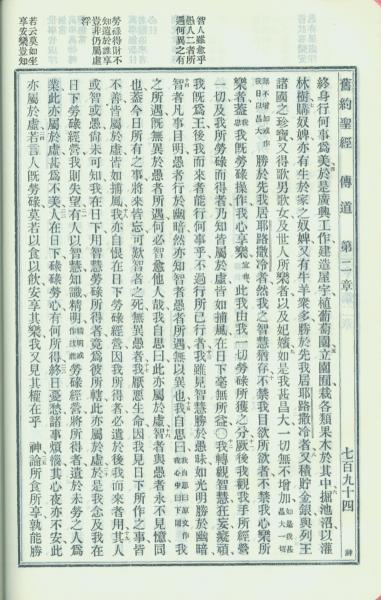 舊約聖經 傳道 第二章 七百九十四
終身行何事爲美於是廣興工作建造屋宇植葡萄園立園囿栽各類果木於其中掘池沼以灌
林樹購奴婢亦有生於家之奴婢又有牛羊衆多勝於先我居耶路撒冷者又積貯金銀與列王
諸國之珍寶又得歌男歌女及世人所樂者以及妃嬪如是我甚昌大一切無不增加如是我甚昌大一切
無不增加或作我日以昌盛勝於先我居耶路撒冷者然我之智慧猶存不禁我目欲所欲者不禁我心樂所
樂者蓋我旣勞碌操作我心享樂此我由我一切勞碌所獲之分厥後我觀我手所經營
一切及我所勞碌而得者乃知皆屬於虛皆如捕風在日下毫無所益○我轉觀智慧狂妄癡頑
我旣爲王後我而來者能行何事乎不過行所已行者我雖見智慧勝於愚昧如光明勝於幽暗
智者凡事目明愚者行於幽暗然亦知智者愚者所遇無以異也我自思曰
之所遇旣無異於愚者所遇何必智愈他人哉我自思曰此亦屬於虛智者與愚者永不見憶同
也蓋今日所有之事將來皆忘可歎智者之死無異愚者我厭惡生命因我見日下所作之事皆
不善皆屬於虛皆如捕風我亦自恨在日下勞碌經營因我所得者必遺於後我而來者用其人
或智或愚尚未可知我在日下用智慧勞碌所得者竟爲彼所轄此亦屬於虛於是我念及我在
日下勞碌經營我則失望有人以智慧知識精明勞碌經營將所得者遺於未勞之人爲
業此亦屬於虛甚爲不美人在日下碌碌勞心有何所得終日憂愁諸事煩惱其心夜亦不安此
亦屬於虛若言人旣勞碌莫若以食以飲安享其樂我又見其權在乎 神論所食所享孰能勝
智人雖愈乎
愚人二者所
遇何異之有
勞碌得財不
知遺於誰享
豈非仍屬虛
浮
若云莫如坐
享安樂豈知